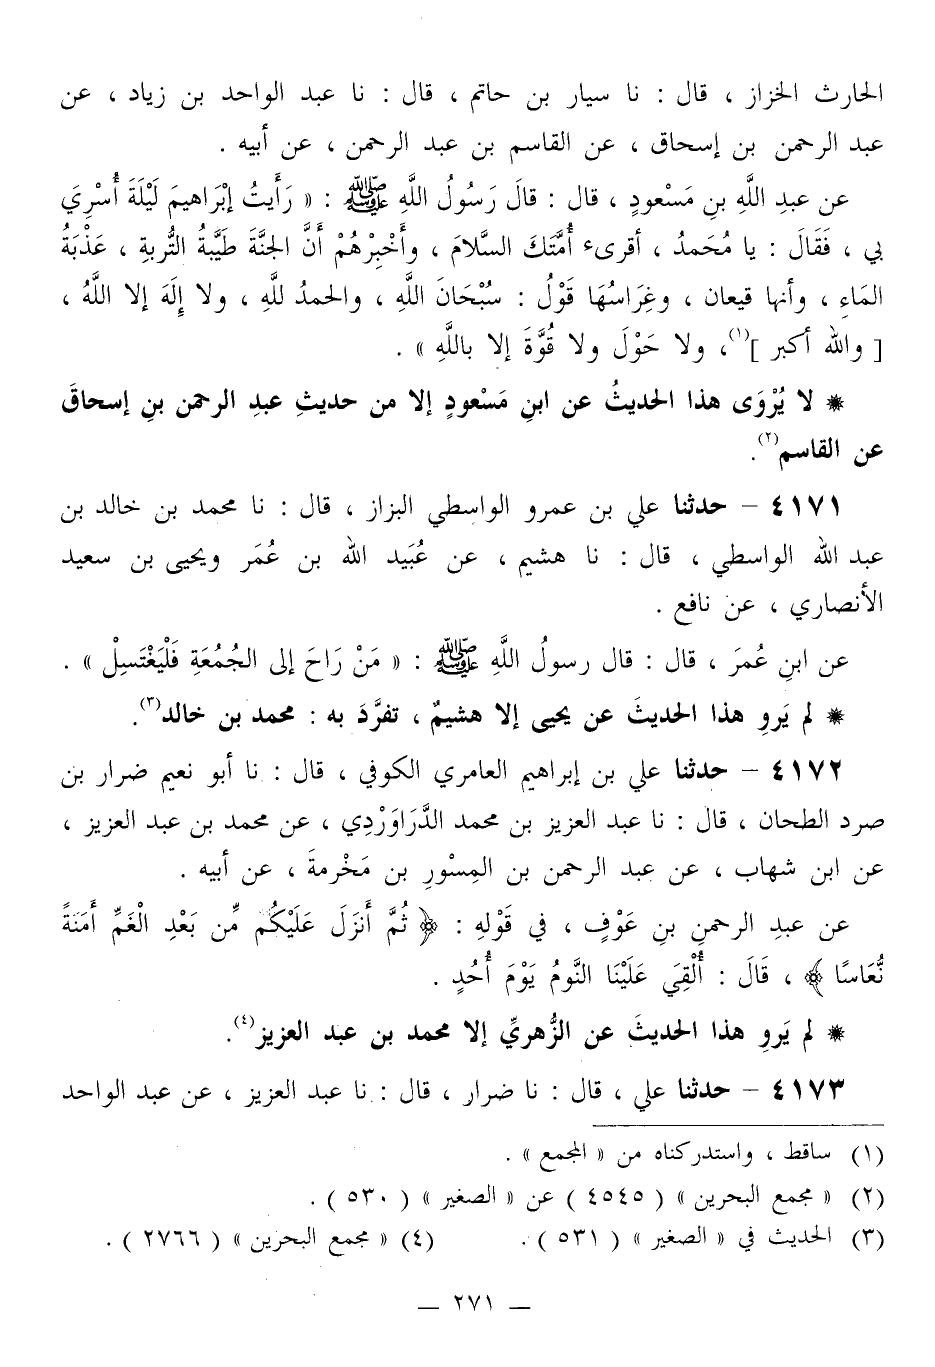 الحارث الخزاز ، قال : نا سيار بن حاتم ، قال : نا عبد الواحد بن زياد ، عن
عبد الرحمن بن إسحاق ، عن القاسم بن عبد الرحمن ، عن أبيه .
عن عبدِ اللَّهِ بنِ مَسْعودٍ ، قال : قالَ رَسُولُ اللَّهِ ﷺ : « رَأَيتُ إبْرَاهيمَ لَيْلَةَ أُسْرِيَ
بي ، فَقَالَ : يا مُحَمدُ ، أقرىء أُمَّتَكَ السَّلامَ ، وأَخْبِرْهُمْ أَنَّ الجنَّةَ طَيِّبَةُ التُّربةِ ، عَذْبَةُ
المَاءِ ، وأنها قيعان ، وغِرَاسُهَا قَوْلُ : سُبْحَانَ اللَّهِ ، والحمدُ للَّهِ ، ولا إِلَهَ إلا اللَّهُ ،
[ والله أكبر ](١)، ولا حَوْلَ ولا قُوَّةَ إلا باللَّهِ » .
* لا يُرْوَى هذا الحديثُ عن ابنِ مَسْعودٍ إلا من حديثِ عبدِ الرحمن بنِ إسحاقَ
عن القاسم(٢).
٤١٧١ – حدثنا علي بن عمرو الواسطي البزاز ، قال : نا محمد بن خالد بن
عبد الله الواسطي ، قال : نا هشيم ، عن عُبَيد الله بن عُمَر ويحيى بن سعيد
الأنصاري ، عن نافع .
عن ابنِ عُمرَ ، قال : قال رسولُ اللَّهِ ﷺ : « مَنْ رَاحَ إلى الجُمُعَةِ فَلْيَغْتَسِلْ » .
* لم يَروِ هذا الحديثَ عن يحيى إلا هشيمٌ ، تفرَّدَ به : محمد بن خالد(٣).
٤١٧٢ – حدثنا علي بن إبراهيم العامري الكوفي ، قال : نا أبو نعيم ضرار بن
صرد الطحان ، قال : نا عبد العزيز بن محمد الدَّرَاوَرْدِي ، عن محمد بن عبد العزيز ،
عن ابن شهاب ، عن عبد الرحمن بن المِسْورِ بن مَخْرمةَ ، عن أبيه .
عن عبدِ الرحمنِ بنِ عَوْفٍ ، في قَوْلهِ : ﴿ ثُمَّ أَنزَلَ عَلَيْكُم مِّن بَعْدِ الْغَمِّ أَمَنَةً
نُّعَاسًا ﴾ ، قَالَ : أُلْقِيَ عَلَيْنَا النَّومُ يَوْمَ أُحُدٍ .
* لم يَروِ هذا الحديثَ عن الزُّهريِّ إلا محمد بن عبد العزيز(٤).
٤١٧٣ – حدثنا علي ، قال : نا ضرار ، قال : نا عبد العزيز ، عن عبد الواحد
(١) ساقط ، واستدركناه من « المجمع » .
(٢) « مجمع البحرين » ( ٤٥٤٥ ) عن « الصغير » ( ٥٣٠ ) .
(٣) الحديث في « الصغير » ( ٥٣١ ) . (٤) « مجمع البحرين » ( ٢٧٦٦ ) .
— ٢٧١ —